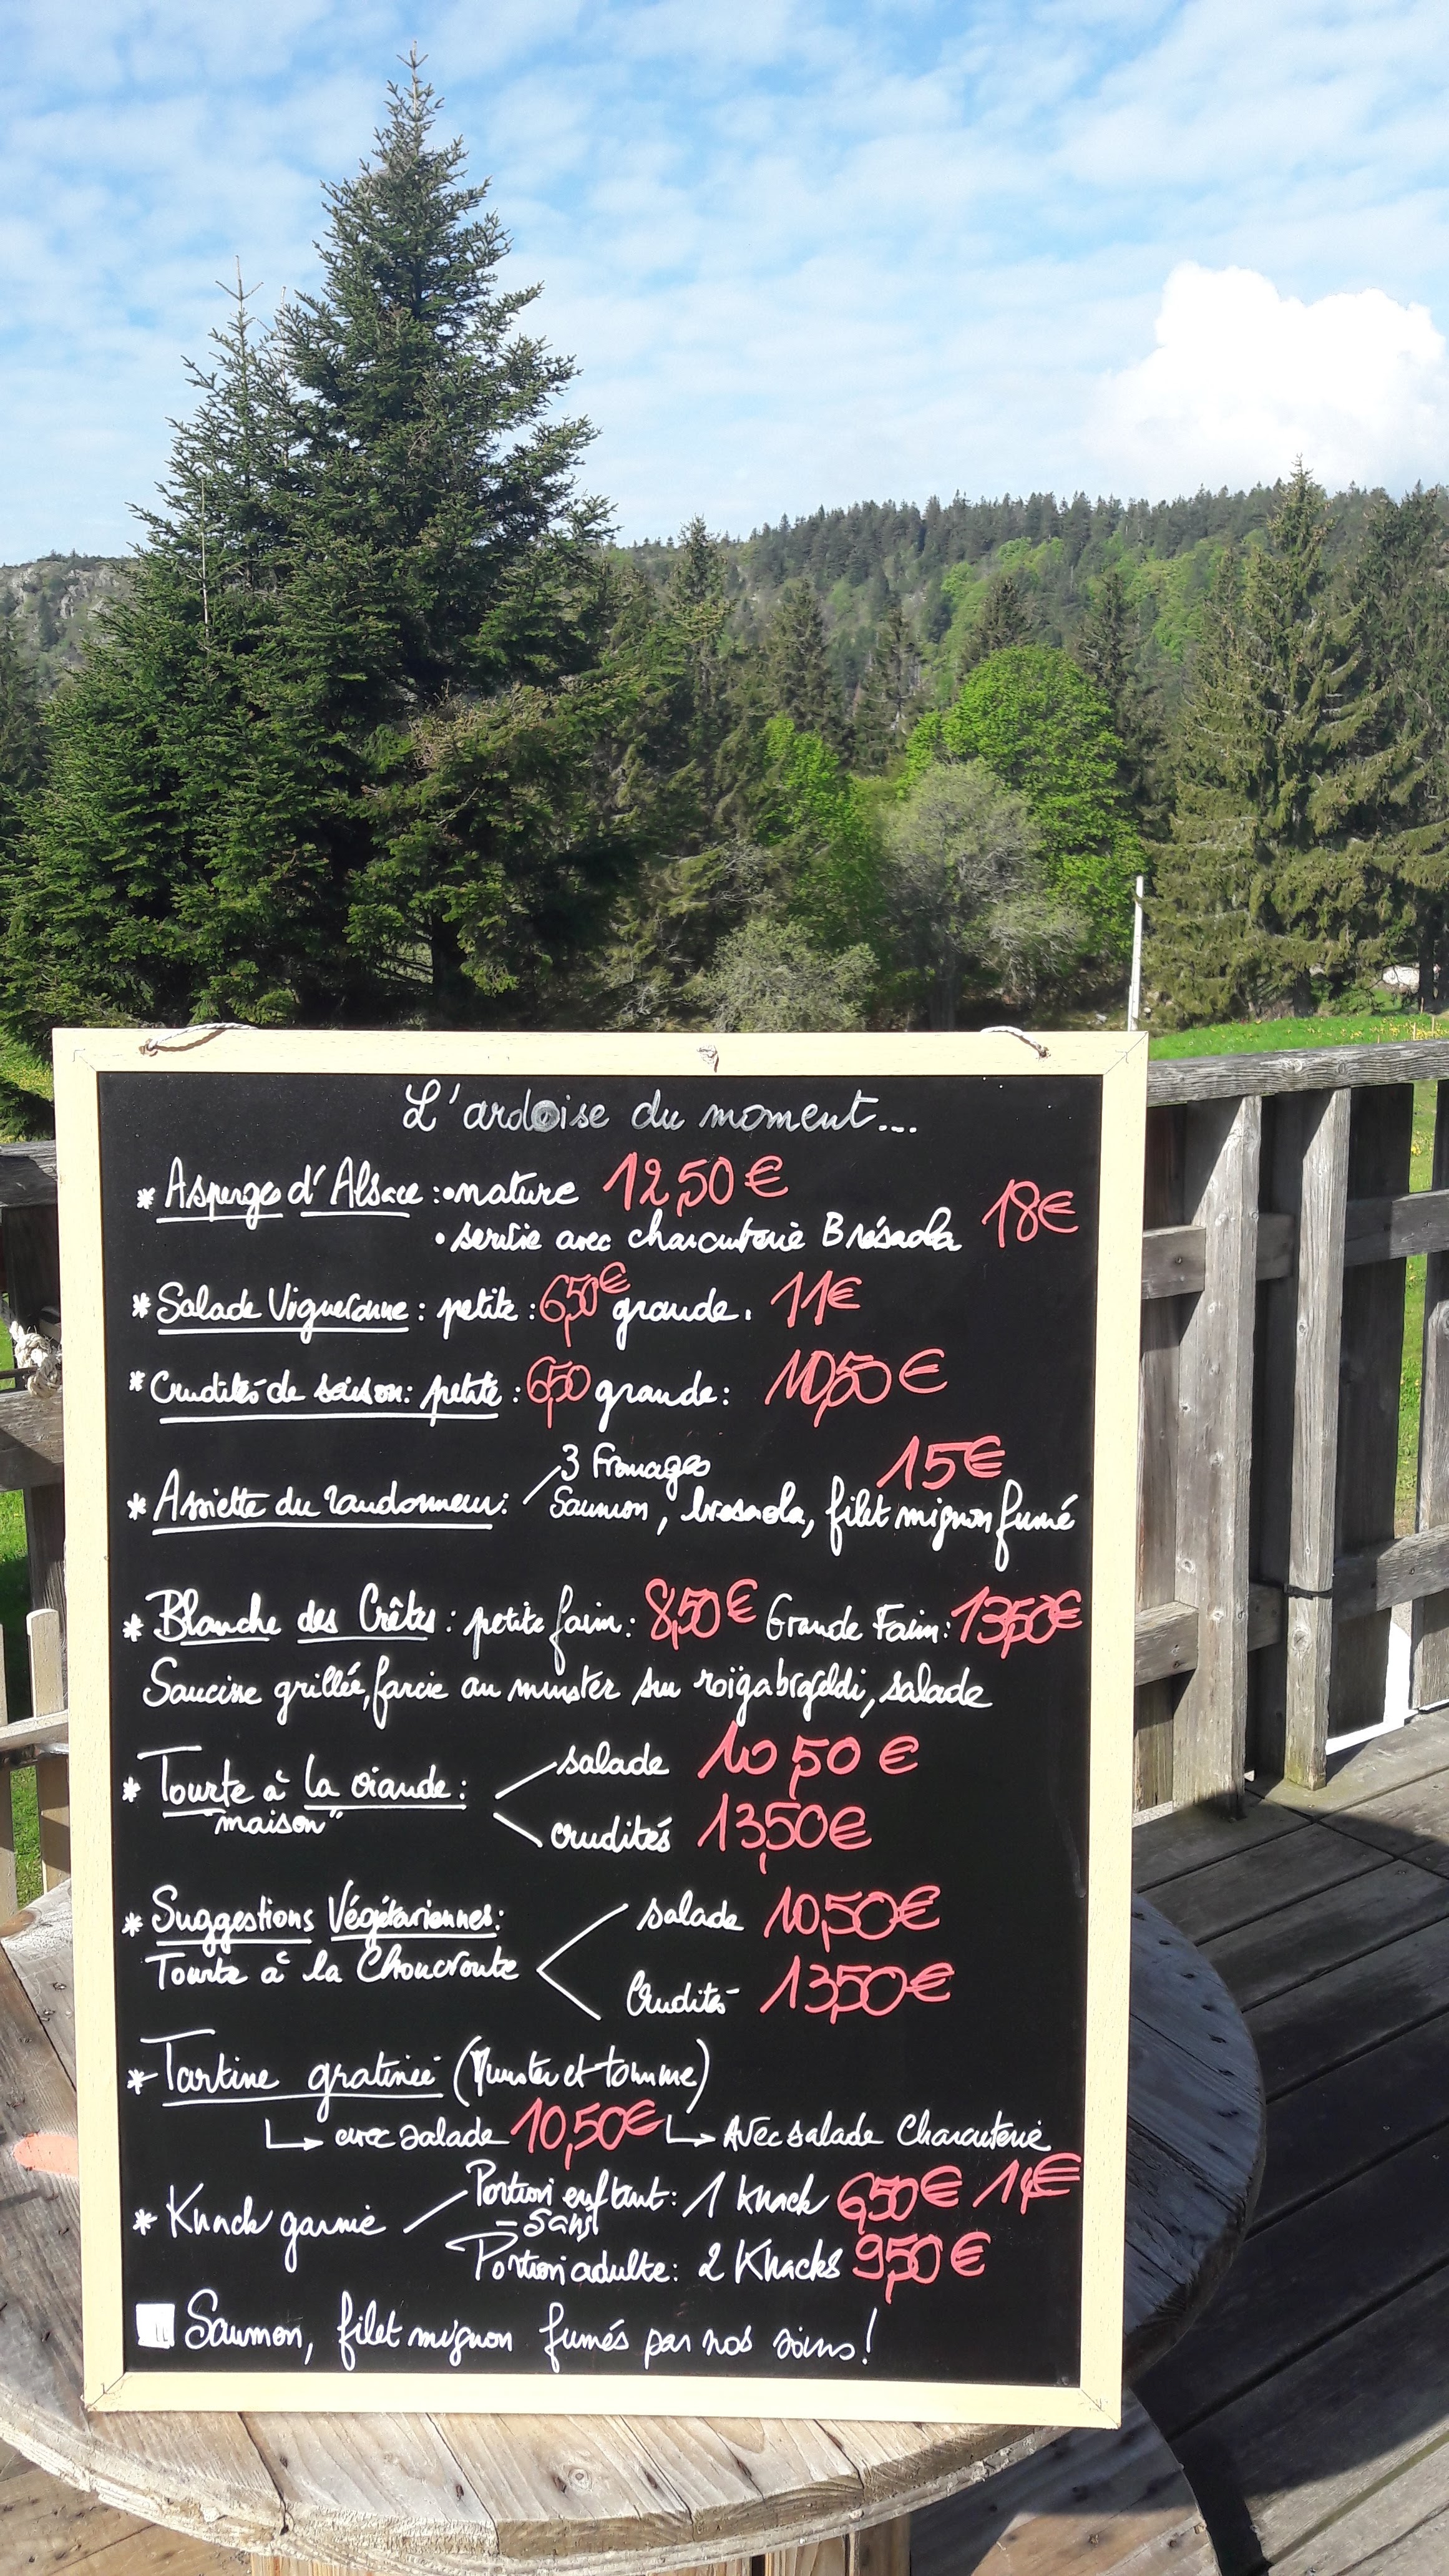 L'ardoise du moment...
* Asperges d'Alsace : • nature 12,50 €
• servie avec charcuterie Brésaola 18 €
* Salade Vigneronne : petite : 6,50 € grande : 11 €
* Crudités de saison : petite : 6,50 grande : 10,50 €
3 Fromages 15 €
* Assiette du randonneur : Saumon, bresaola, filet mignon fumé
* Blanche des Crêtes : petite faim : 8,50 € Grande Faim : 13,50 €
Saucisse grillée, farcie au munster sur roïgabrageldi, salade
* Tourte à la viande : salade 10,50 €
"maison" crudités 13,50 €
* Suggestions Végétariennes : salade 10,50 €
Tourte à la Choucroute
Crudités 13,50 €
* Tartine gratinée (Munster et tomme)
avec salade 10,50 € Avec salade Charcuterie
Portion enfant : 1 Knack 6,50 € 14 €
* Knack garnie
Portion adulte : 2 Knacks 9,50 €
Saumon, filet mignon fumés par nos soins !